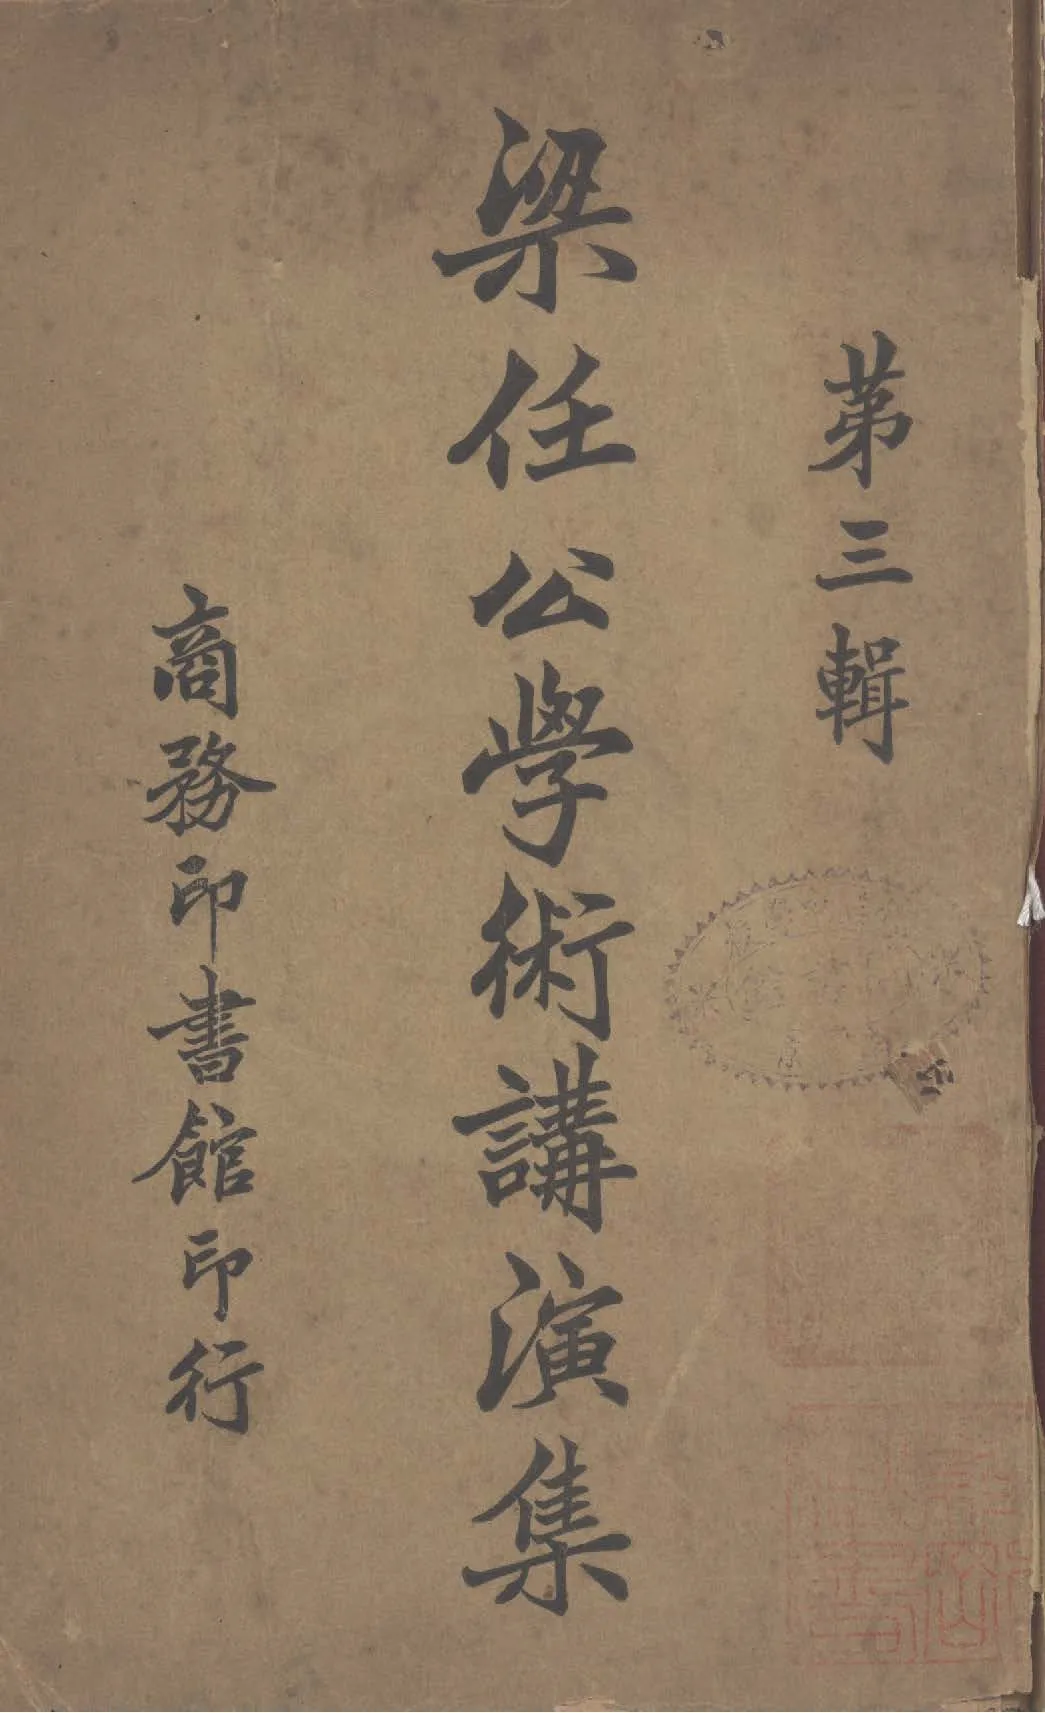 第三輯
梁任公學術講演集
商務印書館印行